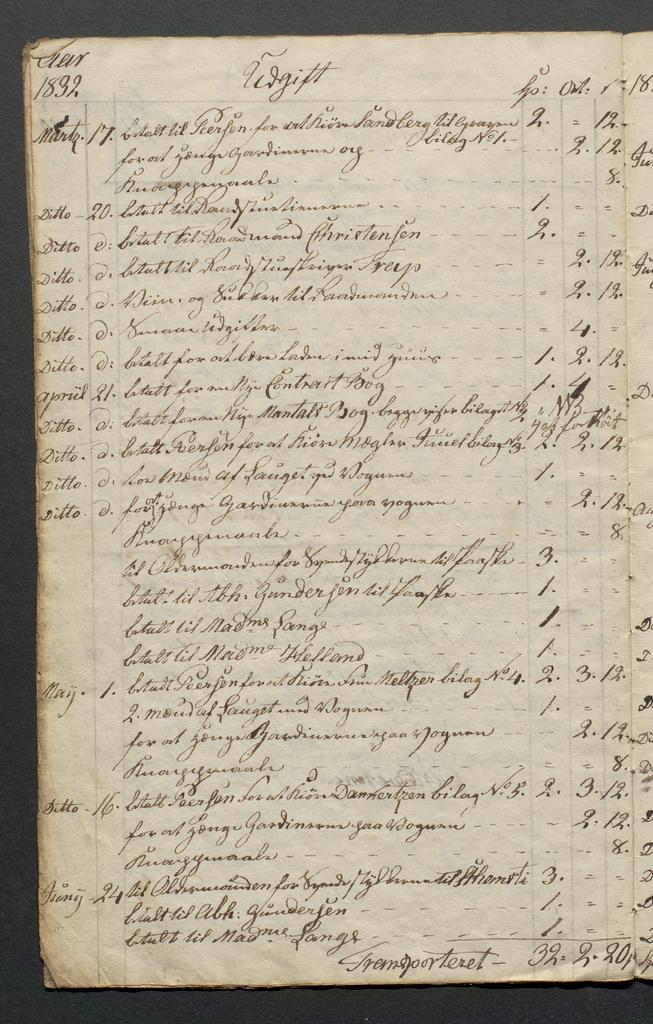 Aar
1832 Udgift Sp: Ort: s
Martz. 17. betalt til Peersen for at Kiöre Sandberg til Graven bilag No 1. 2. = 12.
for at hænge Gardinerne og 2. 12.
Knappenaale 8.
Ditto - 20. betalt til Raadstuetienerne 1. = =
Ditto d: betalt til Raadmand Christensen 2. = =
Ditto. d. betalt til Raadstueskriver = 2. 12.
Ditto. d. Viin og Sukker til Raadmanden = 2. 12.
Ditto. d: Smaae Udgifter = 4. =
Ditto. d: betalt for at bære Laden i mid Huus 1. 2. 12.
Apriil 21. betalt for en Nye Contract Bog 1. 4
Ditto. d: betalt for en Nye Mantals Bog begge viser bilaget No 2
Ditto. d. betalt Peersen for at Kiöre Mægler Juuel bilag No 3. 2. 2. 12
Ditto. d: toe Mænd af Lauget ved Vognen 1. = =
Ditto d. for at hænge Gardinerne paa vognen = 2. 12.
Knappenaale = = 8.
til Oldermanden for Syndestykkerne til Paaske 3. = =
betalt til Abh: Gundersen til Paaske 1. = =
betalt til Madme Lange 1. = =
betalt til Madme Hefland 1. = =
May. 1. betalt Peersen for at Kiöre Frue Meltzer bilag No 4. 2. 3. 12.
2. mænd af Lauget med Vognen 1. = =
for at hænge Gardinerne paa Vognen 2. 12.
Knappenaale = = 8.
Ditto - 16. betalt Peersen for at Kiöre Dankertzen bilag No. 5. 2. 3. 12.
for at hænge Gardinerne paa Vognen 2. 12.
Knappenaale 8.
Juny - 24 til Oldermanden for Syndestykkerne til St Hansti 3. = =
betalt til Abh: Gundersen 1. = =
betalt til Madme Lange 1. = =
Transporteret - 32. 2. 20